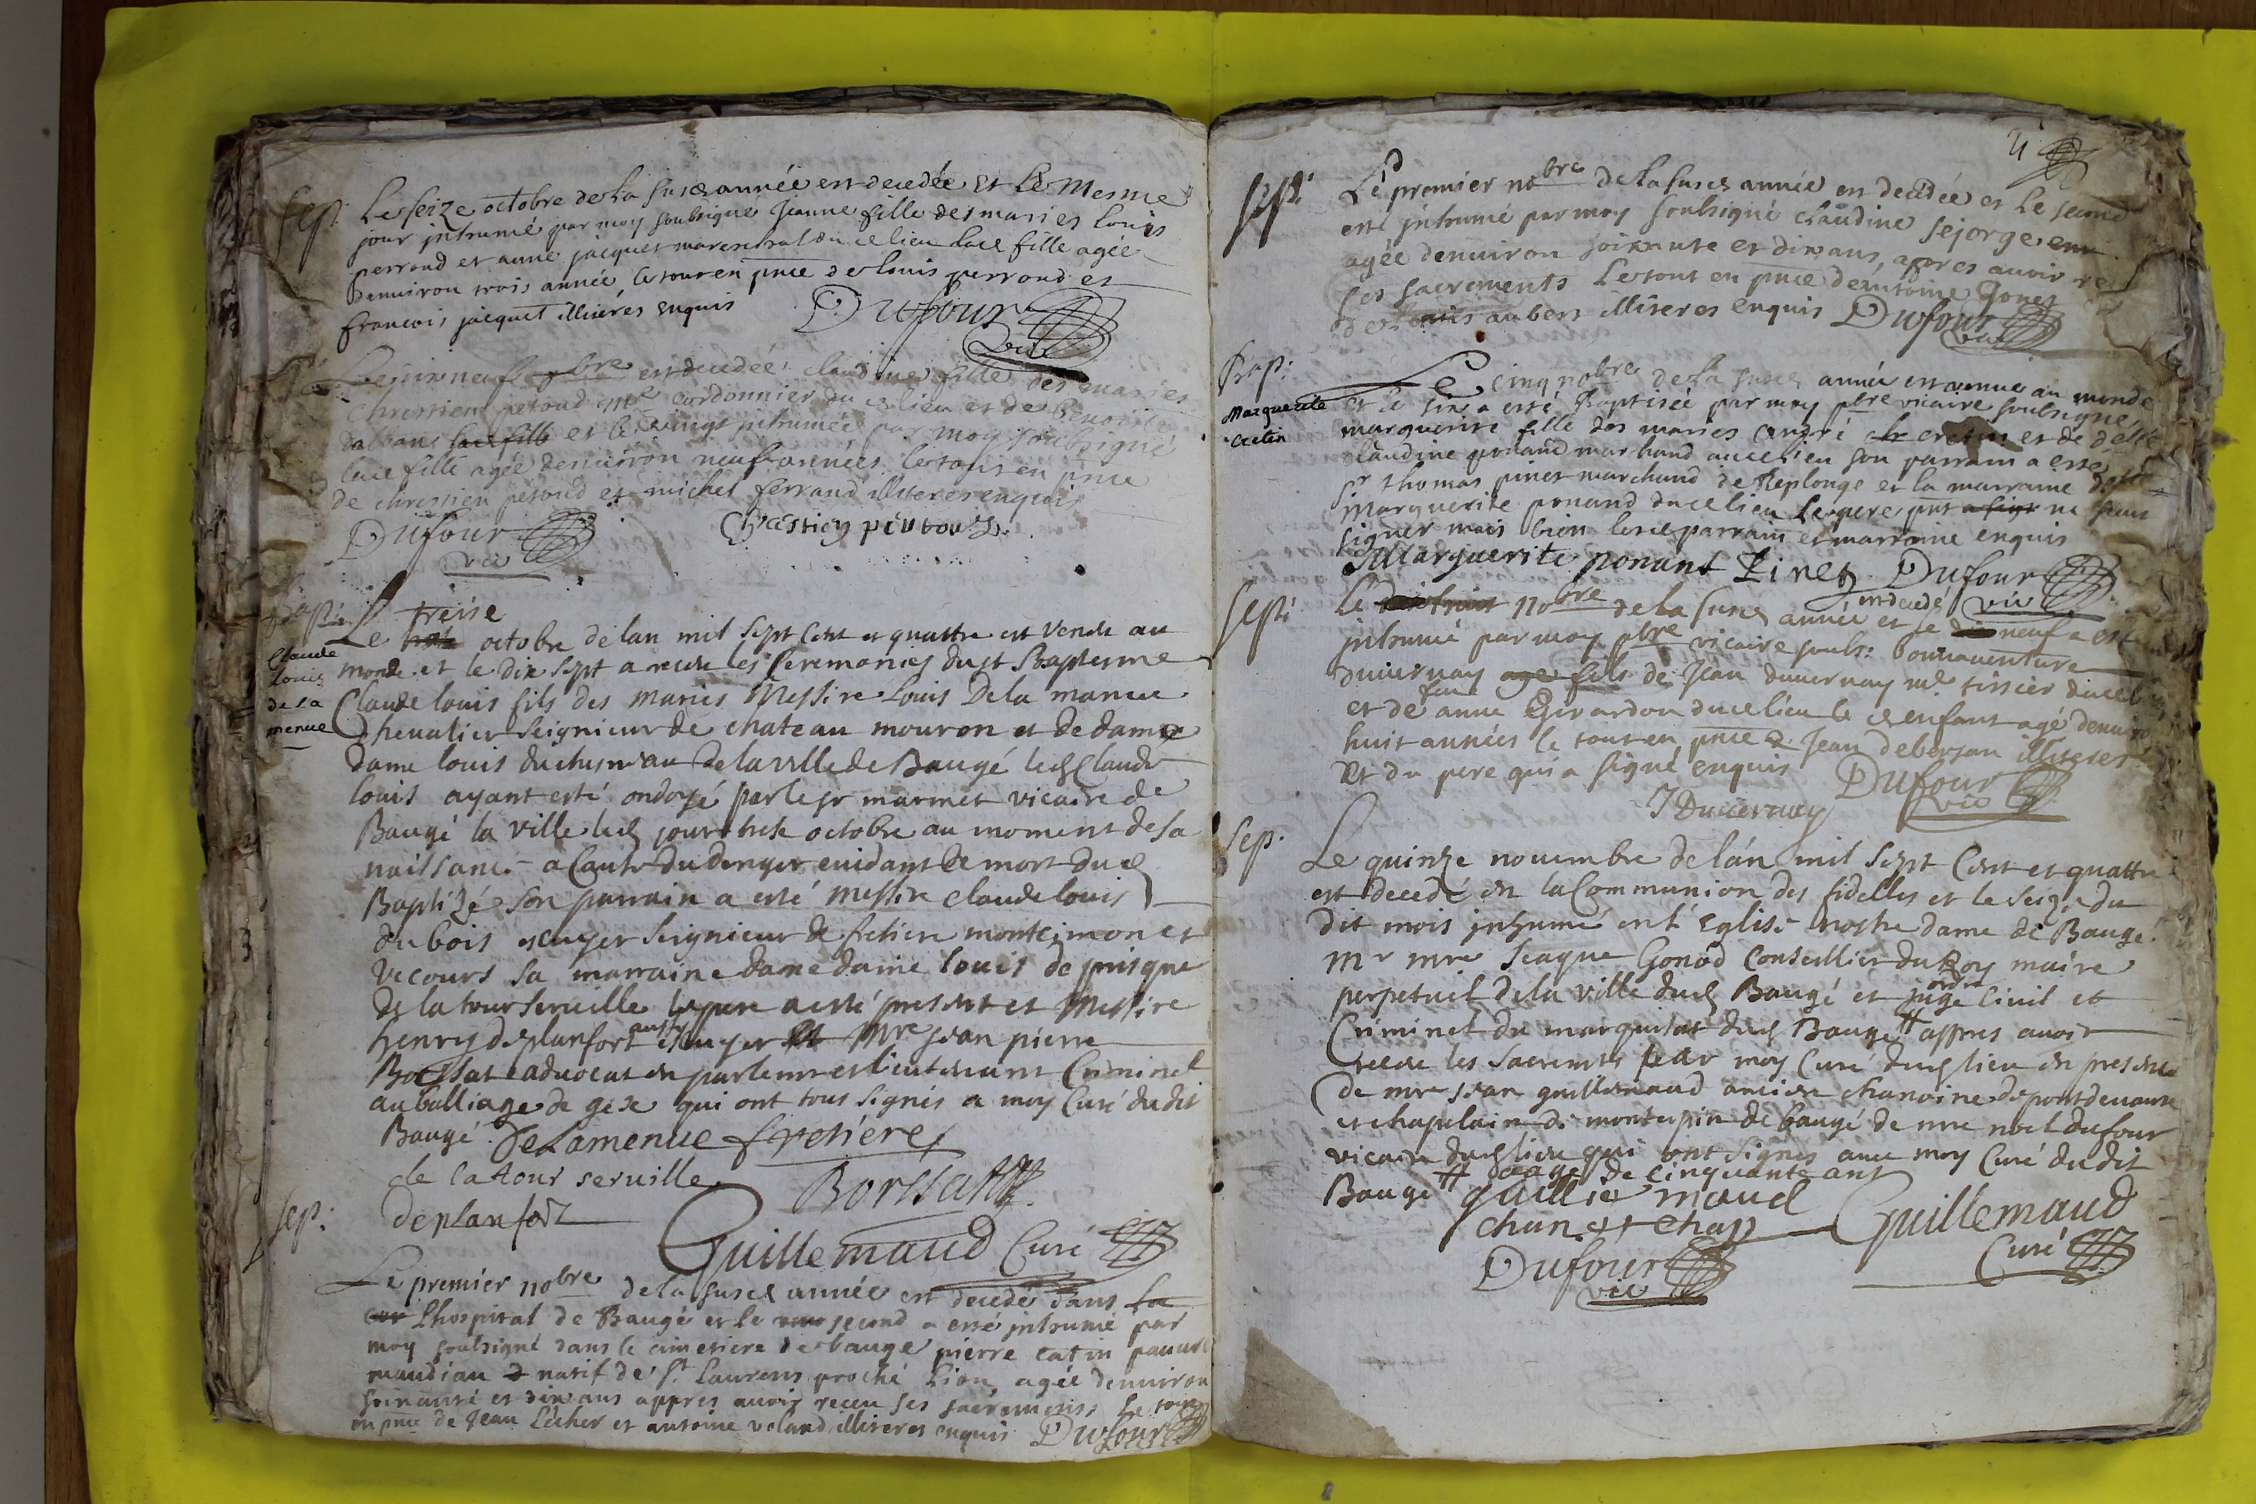 Sep:
Le seize octobre de la susd année est decedée et le mesme
jour inhumé par moy soubsigné Jeanne fille des maries Louis
perroud et anne jacquet du ce lieu lad fille agée
denuiron trois année, le tout en pnce de louis perroud et
francois jacquet illiteres enquis Dufour
vic
Le dixneuf bre est decedée claudine fille des maries
Chrestien petoud mre cordonnier du ce lieu et de Benoite
et le vingt inhumée par moy soubsigné
lad fille agée denuiron neuf années le tout en pnce
de chrestien petoud et michel ferrand illiteres enquis
Dufour
vic
Bapt:
Claude
louis
de La
menue
Le treise octobre de lan mil sept Cent et quattre est venu au
monde et le dix sept a receu les ceremonies du st Baptesme
Claude louis fils des maries Messire Louis De la menue
Cheualier seignieur de chateau mouron et de dame
dame louis de la ville de Baugé led Claude
louis ayant esté ondoyé par le sr marmet vicaire de
Baugé la ville led jour treise octobre au moment de sa
naissance a Cause du denger euidant de mort dud
Baptizé son parrain a esté messire claude louis
du bois escuyer seignieur de fretiere et
vecours sa marraine dame dame louis de
de la tour seruille le pere a esté present et messire
henry deplanfort escuyer et mre jean pierre
Borssat aduocat en parlemt et lieutenant Criminel
au balliage de gex qui ont tous signés a moy Curé dudit
Baugé. De Lamenue fretiere
de la tour seruille Borssat
deplanfort
Guillemaud Curé
Sep:
Le premier nobre de la susd année est decedé dans la
Lhospital de Baugé et le second a esté inhumé par
moy soubsigné dans le cimetiere de bauge pierre catin pauure
mandian natif de St Laurens proche Lion, agée denuiron
soixante et dix ans appres auoir receu ses sacrements le tout
en pnce de Jean Lécher et antoine voland illiteres enquis Dufour
Sept:
Le premier nobre de la susd année est decedée et le second
esté inhumé par moy soubsigné claudine sejorge
agée denuiron soixante et dix ans, apres auoir re
ses sacrements Le tout en pnce dantoine Gonet
aubert illiteres enquis Dufour
vic
Bap:
Marguerite
Cretin
Le cinq nobre de la susd année est venue au monde
et le six a esté Baptisée par moy ptre vicaire soubsigné
marguerite fille des maries André cretin et de delle
claudine ponand marchand du ce lieu son parrain a esté
sr thomas pinet marchand de Replonge et la marraine delle
marguerite ponand du ce lieu Le pere pnt ne sceu
signer mais bien lesd parrain et marraine enquis
Marguerite ponant Pinet Dufour
vic
Sept:
Le nobre de la susd année est decedé et le neuf a esté
inhumé par moy ptre vicaire soubs: bonnauenture
duuernay fils de Jean duuernay me tissier du ce
et de feu anne Girardon du ce lieu led enfant agé denuiron
huit années le tout en pnce de Jean illiteres
et du pere qui a signé enquis Dufour
J Duuernay vic
Sep.
Le quinze nouembre de lan mil sept Cent et quattre
est decedé en la Communion des fidelles et le seize du
dit mois inhumé en l'Eglise nostre dame de Baugé
Mr mre Jeaque Gonod Conseillier du Roy maire
perpetuel de la ville dud Baugé et juge ordre Ciuil et
Criminel du marquisat dud Bauge # appres auoir
receu les sacremts par moy Curé dud lieu en presence
de mre jean guillemaud ancien chanoine de pontdeuaux
et chapelain de montespin de baugé de mre noel dufour
vicaire dud lieu qui ont signés auec moy Curé dudit
Baugé # aagé de cinquante ans
guillemaud
chan et chap Guillemaud
Dufour Curé
vic